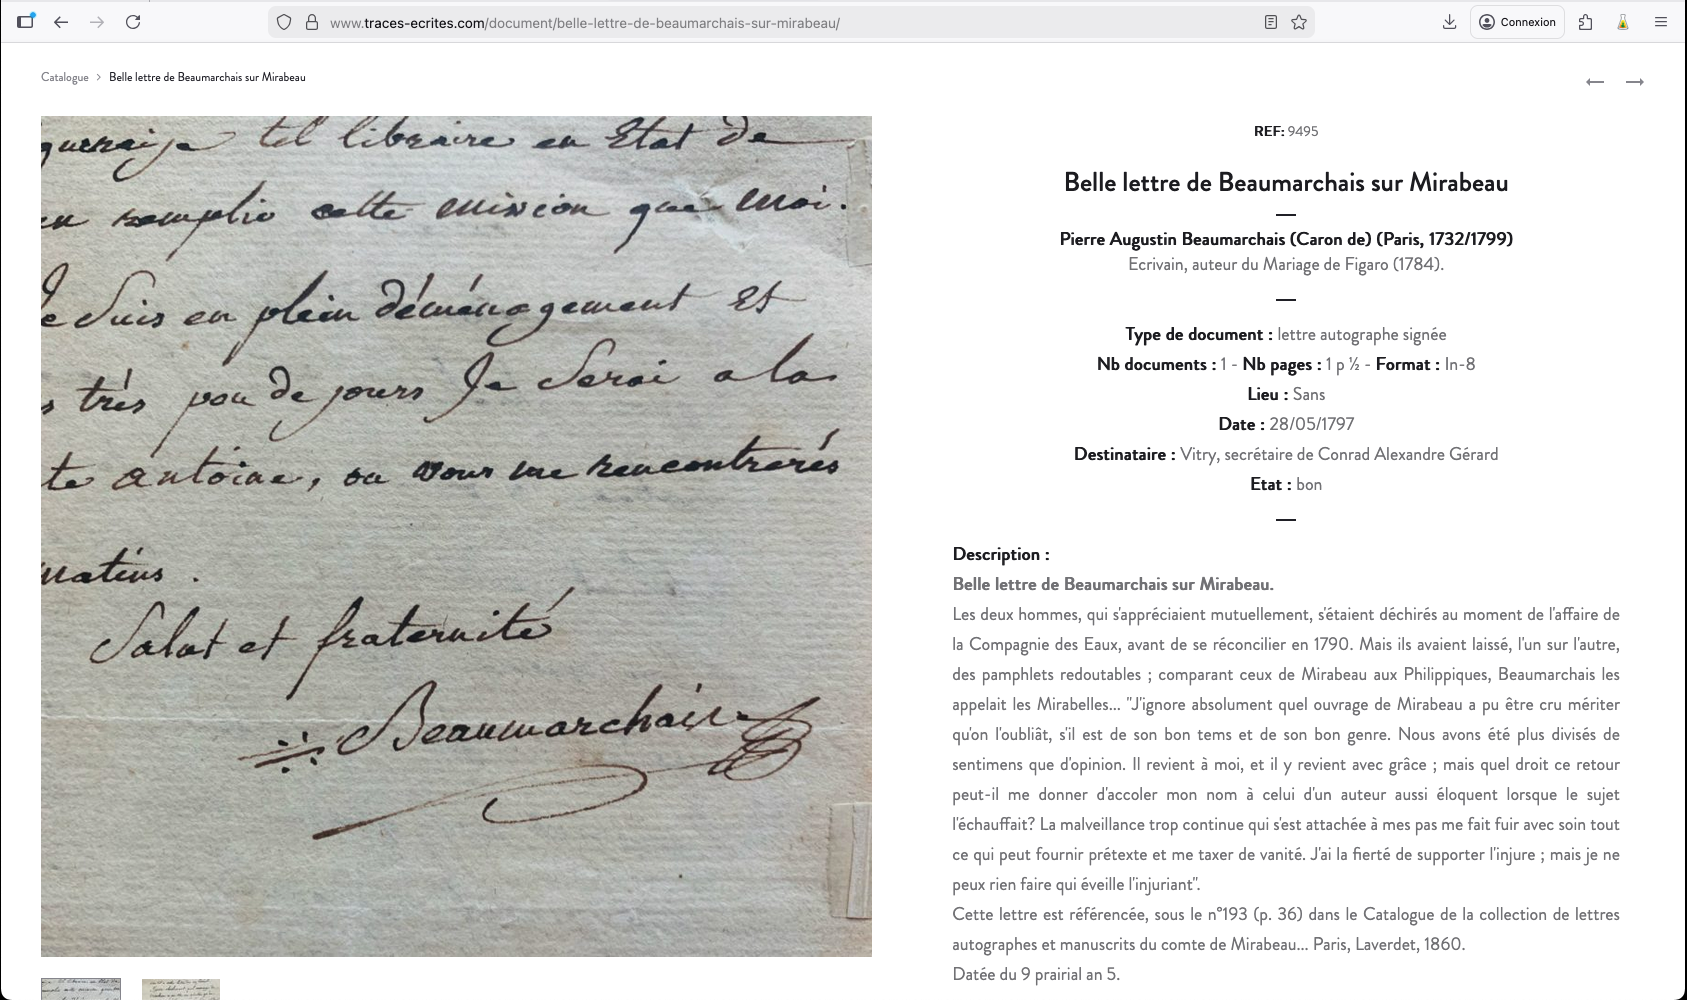 www.traces-ecrites.com/document/belle-lettre-de-beaumarchais-sur-mirabeau/
Connexion
Catalogue > Belle lettre de Beaumarchais sur Mirabeau
tel libraire en Etat de
cette mission que moi.
Je Suis en plein déménagement Et
s très peu de jours Je Serai a la
te antoine, ou vous me rencontrerés
matins .
Salut et fraternité
Beaumarchais
REF: 9495
Belle lettre de Beaumarchais sur Mirabeau
Pierre Augustin Beaumarchais (Caron de) (Paris, 1732/1799)
Ecrivain, auteur du Mariage de Figaro (1784).
Type de document : lettre autographe signée
Nb documents : 1 - Nb pages : 1 p ½ - Format : In-8
Lieu : Sans
Date : 28/05/1797
Destinataire : Vitry, secrétaire de Conrad Alexandre Gérard
Etat : bon
Description :
Belle lettre de Beaumarchais sur Mirabeau.
Les deux hommes, qui s'appréciaient mutuellement, s'étaient déchirés au moment de l'affaire de
la Compagnie des Eaux, avant de se réconcilier en 1790. Mais ils avaient laissé, l'un sur l'autre,
des pamphlets redoutables ; comparant ceux de Mirabeau aux Philippiques, Beaumarchais les
appelait les Mirabelles... "J'ignore absolument quel ouvrage de Mirabeau a pu être cru mériter
qu'on l'oubliât, s'il est de son bon tems et de son bon genre. Nous avons été plus divisés de
sentimens que d'opinion. Il revient à moi, et il y revient avec grâce ; mais quel droit ce retour
peut-il me donner d'accoler mon nom à celui d'un auteur aussi éloquent lorsque le sujet
l'échauffait? La malveillance trop continue qui s'est attachée à mes pas me fait fuir avec soin tout
ce qui peut fournir prétexte et me taxer de vanité. J'ai la fierté de supporter l'injure ; mais je ne
peux rien faire qui éveille l'injuriant".
Cette lettre est référencée, sous le n°193 (p. 36) dans le Catalogue de la collection de lettres
autographes et manuscrits du comte de Mirabeau... Paris, Laverdet, 1860.
Datée du 9 prairial an 5.